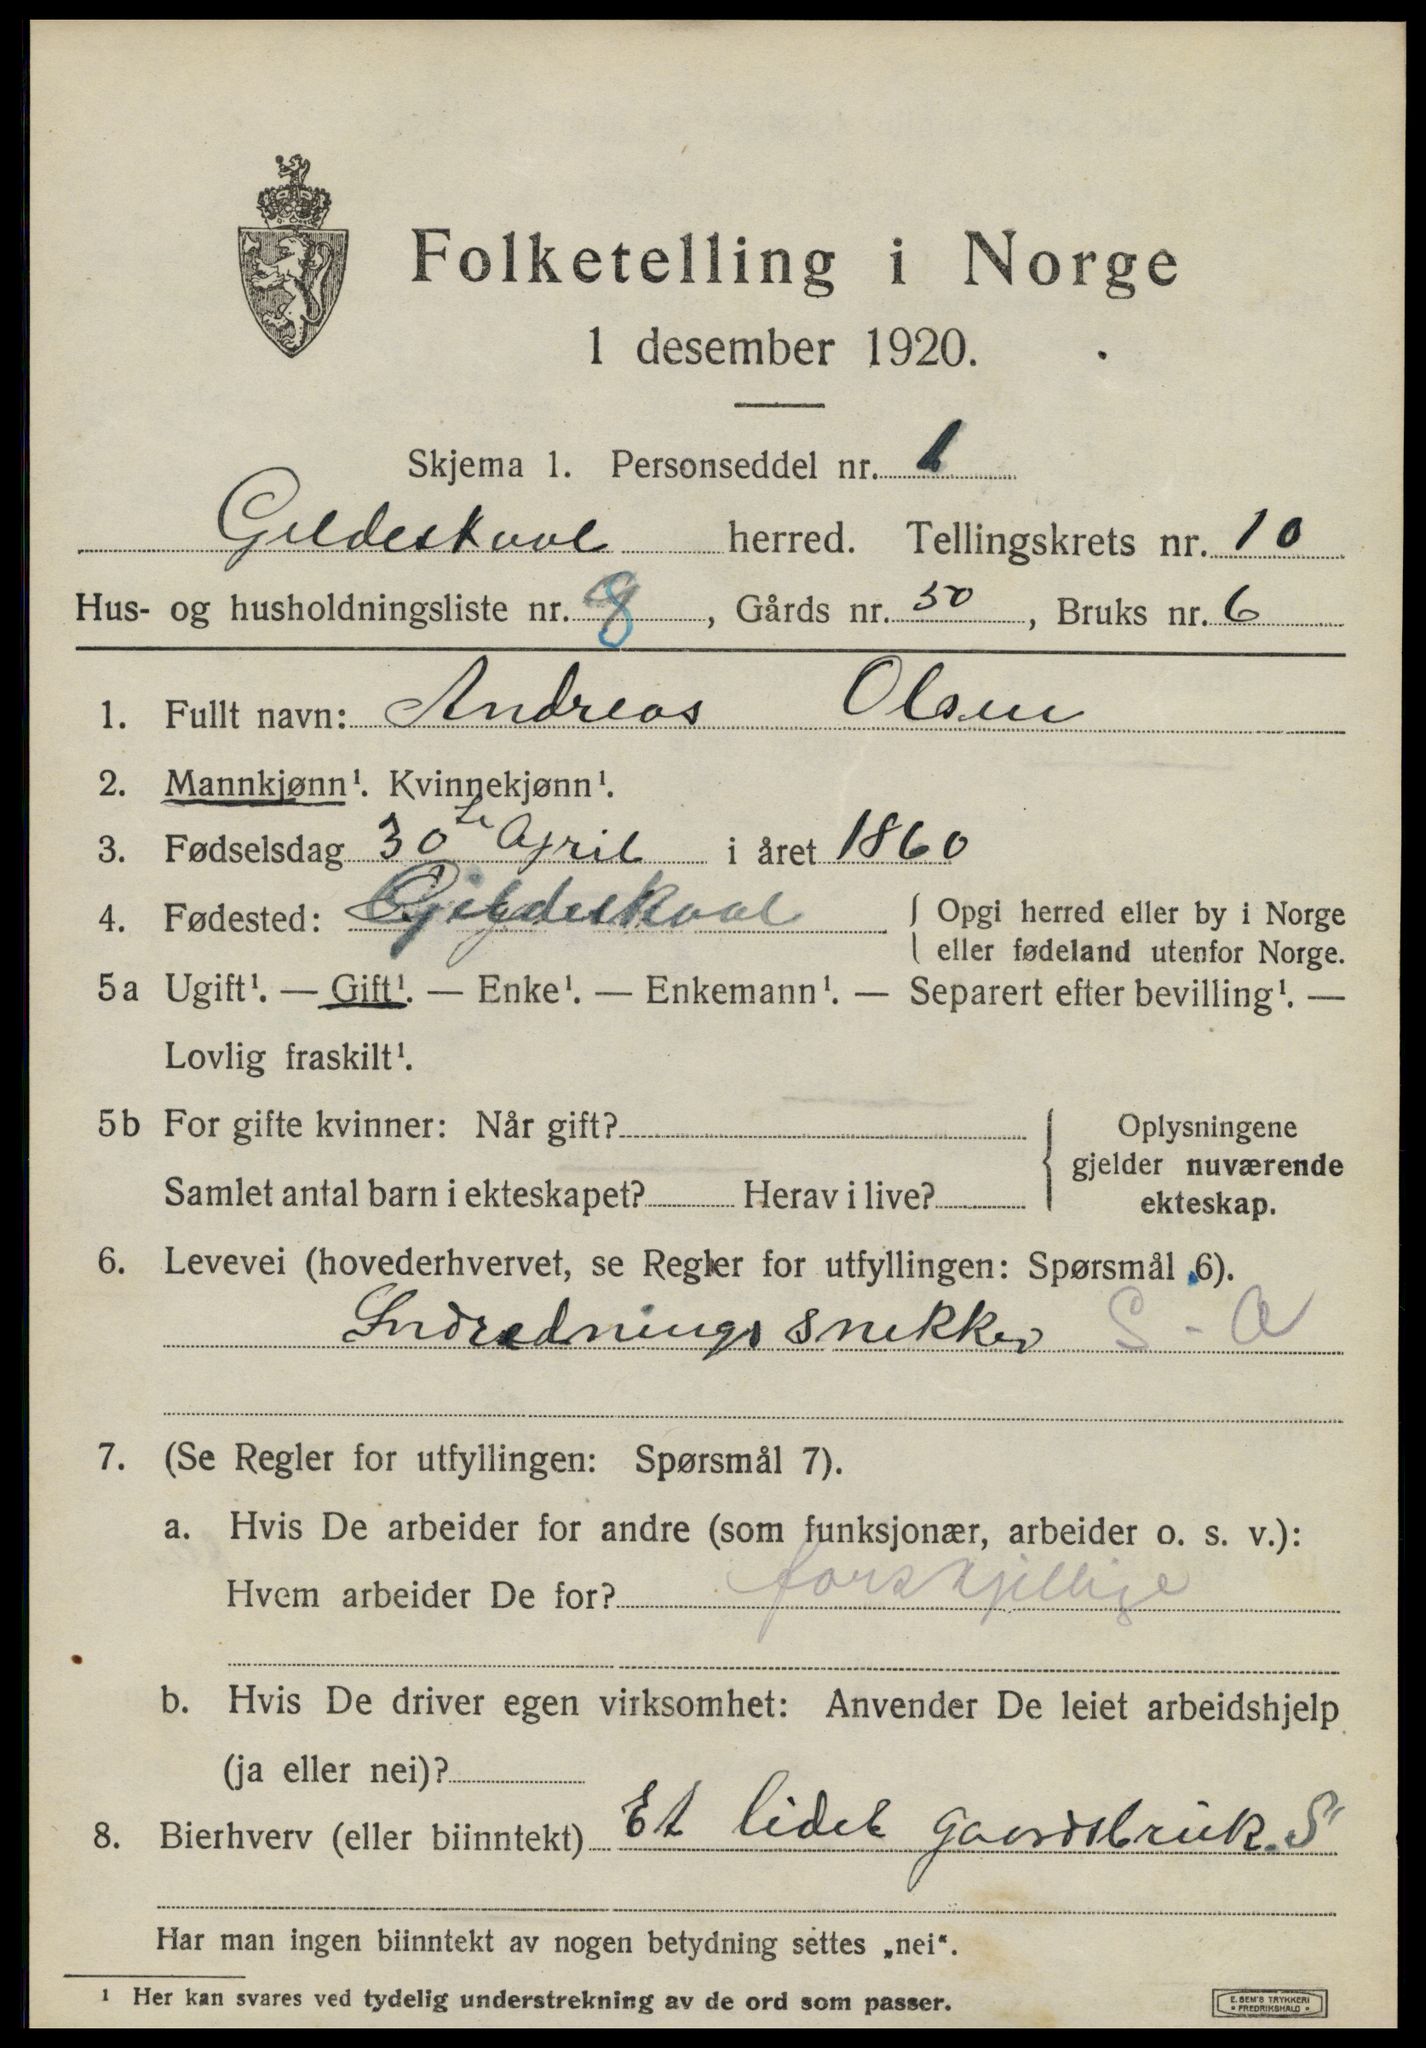 Folketelling i Norge
1 desember 1920.
Skjema 1. Personseddel nr. 1
Gildeskaal herred. Tellingskrets nr. 10
Hus- og husholdningsliste nr. 8, Gårds nr. 50, Bruks nr. 6
1. Fullt navn: Andreas Olsen
2. Mannkjønn¹. Kvinnekjønn¹.
3. Fødselsdag 30te April i året 1860
4. Fødested: Gildeskaal { Opgi herred eller by i Norge
eller fødeland utenfor Norge.
5a Ugift¹. — Gift¹. — Enke¹. — Enkemann¹. — Separert efter bevilling¹. —
Lovlig fraskilt¹.
5b For gifte kvinner: Når gift? { Oplysningene
gjelder nuværende
Samlet antal barn i ekteskapet? Herav i live? ekteskap.
6. Levevei (hovederhvervet, se Regler for utfyllingen: Spørsmål 6).
Indrednings snekker S - A
7. (Se Regler for utfyllingen: Spørsmål 7).
a. Hvis De arbeider for andre (som funksjonær, arbeider o. s. v.):
Hvem arbeider De for? forskjellige
b. Hvis De driver egen virksomhet: Anvender De leiet arbeidshjelp
(ja eller nei)?
8. Bierhverv (eller biinntekt) Et lidet gaardsbruk. S
Har man ingen biinntekt av nogen betydning settes „nei“.
¹ Her kan svares ved tydelig understrekning av de ord som passer.
E. SEM'S TRYKKERI
• FREDRIKSHALD •